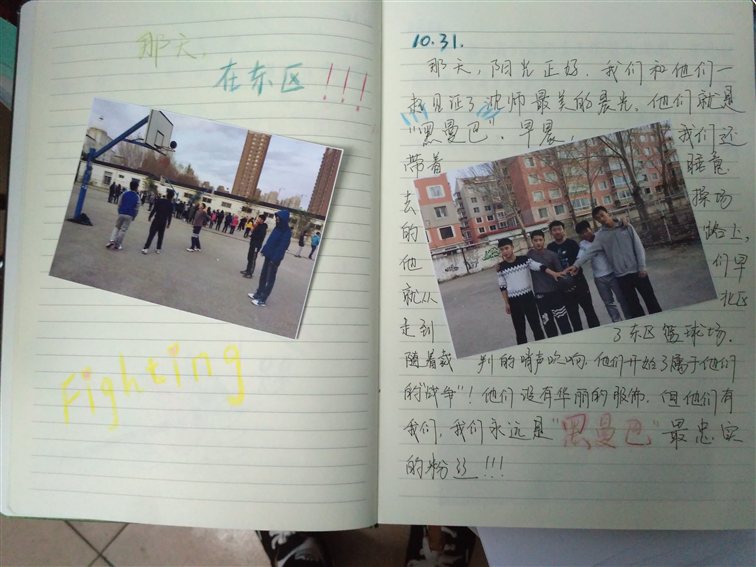 那天,
在东区!!!
Fighting
10.31.
那天，阳光正好，我们和他们一
起见证了沈师最美的晨光，他们就是
"黑曼巴"。早晨，我们还
带着睡意
去操场
的路上,
他们早
就从北区
走到了东区篮球场.
随着裁判的哨声吹响,他们开始了属于他们
的"战争"!他们没有华丽的服饰,但他们有
我们,我们永远是"黑曼巴"最忠实
的粉丝!!!